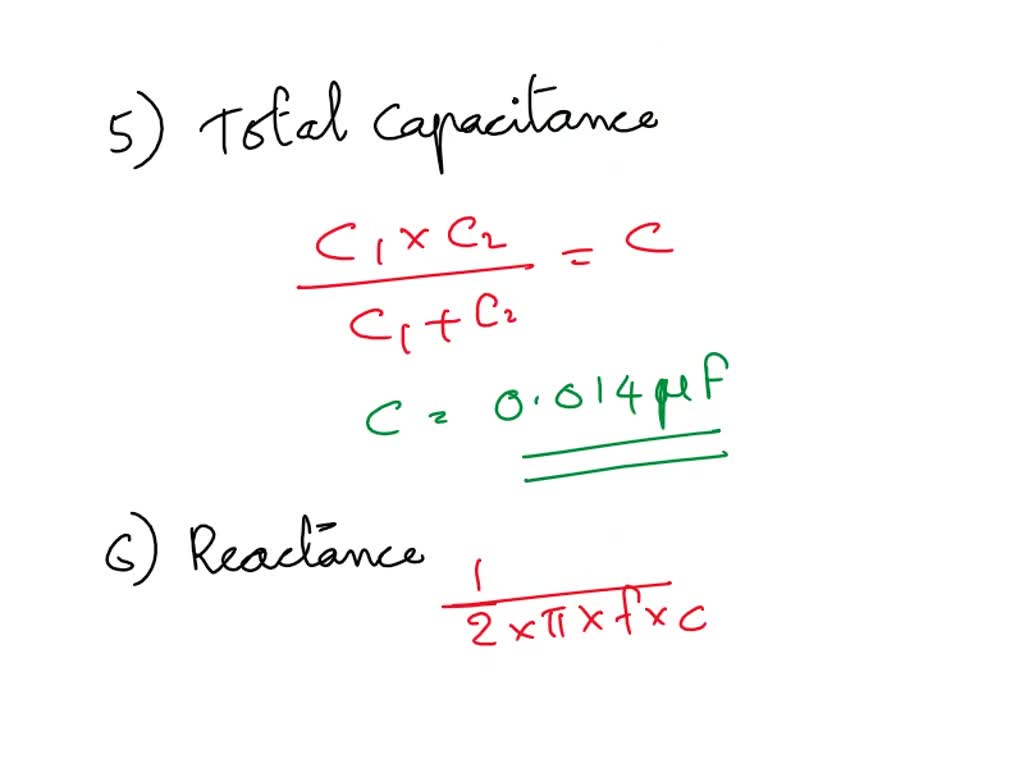 5) Total Capacitance
C₁ × C₂
= C
C₁ + C₂
C = 0.014 μF
6) Reactance
1
2 × π × f × C